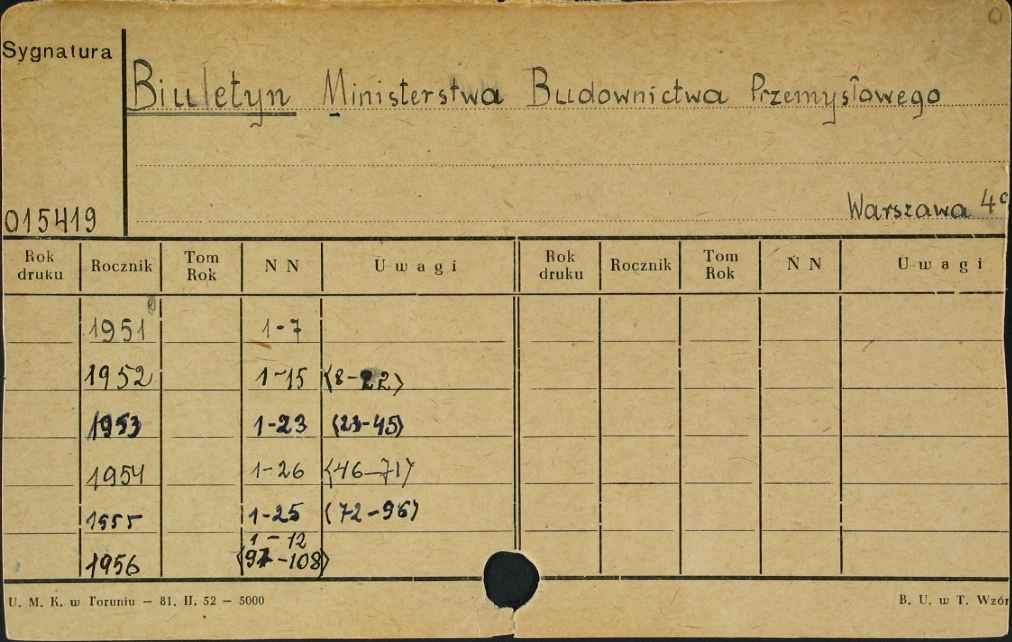 Sygnatura
Biuletyn Ministerstwa Budownictwa Przemysłowego
Warszawa 4°
015419
Rok druku Rocznik Tom Rok N N Uwagi Rok druku Rocznik Tom Rok N N Uwagi
1951 1-7
1952 1-15 (8-22)
1953 1-23 (23-45)
1954 1-26 (46-71)
1955 1-25 (72-96)
1-12
1956 (97-108)
U. M. K. w Toruniu — 81. II. 52 — 5000 B. U. w T. Wzór